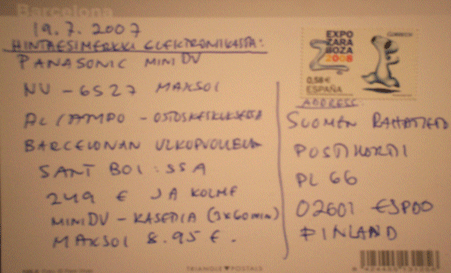 Barcelona
19.7.2007
HINTAESIMERKKI ELEKTRONIIKASTA:
PANASONIC MINIDV
NV-GS27 MAKSOI
ALCAMPO-OSTOSKESKUKSESSA
BARCELONAN ULKOPUOLELLA
SANT BOI:SSA
249 € JA KOLME
MINIDV-KASETTIA (3x60min)
MAKSOI 8.95 €.
EXPO
ZARA
GOZA
2008
0,58€
ESPAÑA
CORREOS
ADDRESS:
SUOMEN RAHATIETO
POSTIKORTTI
PL 66
02601 ESPOO
FINLAND
TRIANGLE POSTALS